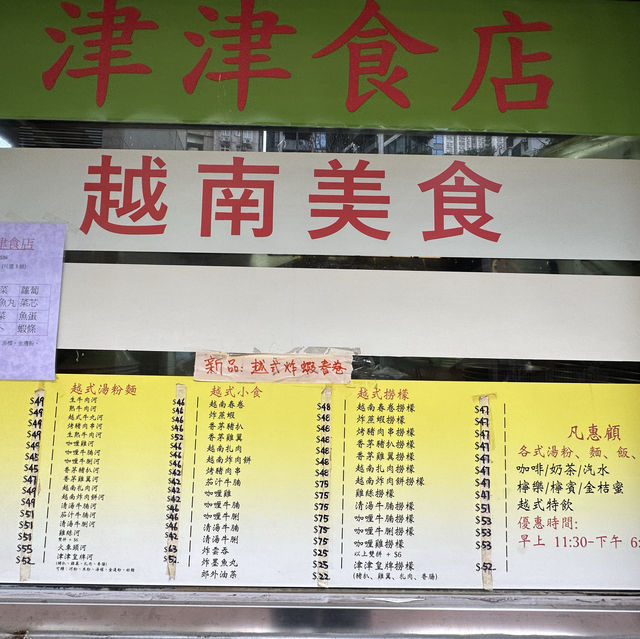 津津食店
越南美食
津食店
菜 蘿蔔
魚丸 菜芯
菜 魚蛋
蝦條
新品: 越式炸蝦春卷
越式湯粉麵
$49 生牛肉河
$49 熟牛肉河
$49 越式牛丸河
$49 烤豬肉串河
$49 生熟牛肉河
咖喱雞河
咖喱牛腩河
咖喱牛脷河
香茅豬扒河
香茅雞翼河
越南扎肉河
越南炸肉餅河
清湯牛腩河
茄汁牛腩河
$51 清湯牛脷河
$51 雞絲河
雙拼 + $6
$55 火車頭河
$52 津津皇牌河
越式小食
$46 越南春卷
$46 炸蔗蝦
$46 烤豬肉串
$52 香茅豬扒
香茅雞翼
越南扎肉
越南炸肉餅
烤豬肉串
茄汁牛腩
咖喱雞
咖喱牛腩
咖喱牛脷
清湯牛腩
清湯牛脷
炸雲吞
$63 炸墨魚丸
$52 郊外油菜
越式撈檬
$48 越南春卷撈檬
$48 炸蔗蝦撈檬
$48 烤豬肉串撈檬
$48 香茅豬扒撈檬
$48 香茅雞翼撈檬
$48 越南扎肉撈檬
$48 越南炸肉餅撈檬
$75 雞絲撈檬
$75 清湯牛腩撈檬
$75 咖喱牛腩撈檬
$75 咖喱牛脷撈檬
$75 咖喱雞撈檬
$25 以上雙拼 + $6
$25 津津皇牌撈檬
$22 (豬扒、雞翼、扎肉、春腸)
$47
$47
$47
$47
$47
$47
$51
$53
$53
$53
$52
凡惠顧
各式湯粉、麵、飯、
咖啡/奶茶/汽水
檸樂/檸賓/金桔蜜
越式特飲
優惠時間:
早上 11:30-下午 6: